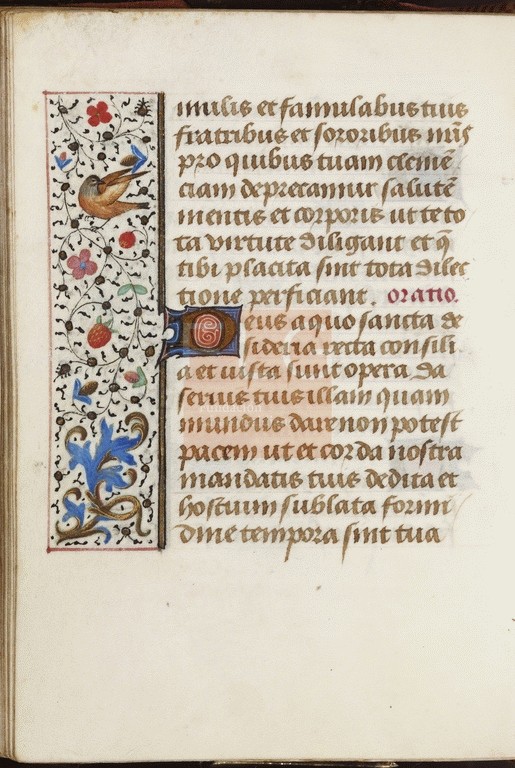 mulis et famulabus tuis
fratribus et sororibus nr̄is
pro quibus tuam clemē
ciam deprecamur salutē
mentis et corporis ut te to
ta virtute diligant et q̄
tibi placita sint tota dilec
tione perficiant. oratio.
Deus a quo sancta de
sideria recta consili
a et iusta sunt opera da
servis tuis illam quam
mundus dare non potest
pacem ut et corda nostra
mandatis tuis dedita et
hostium sublata formi
dine tempora sint tua
fundación